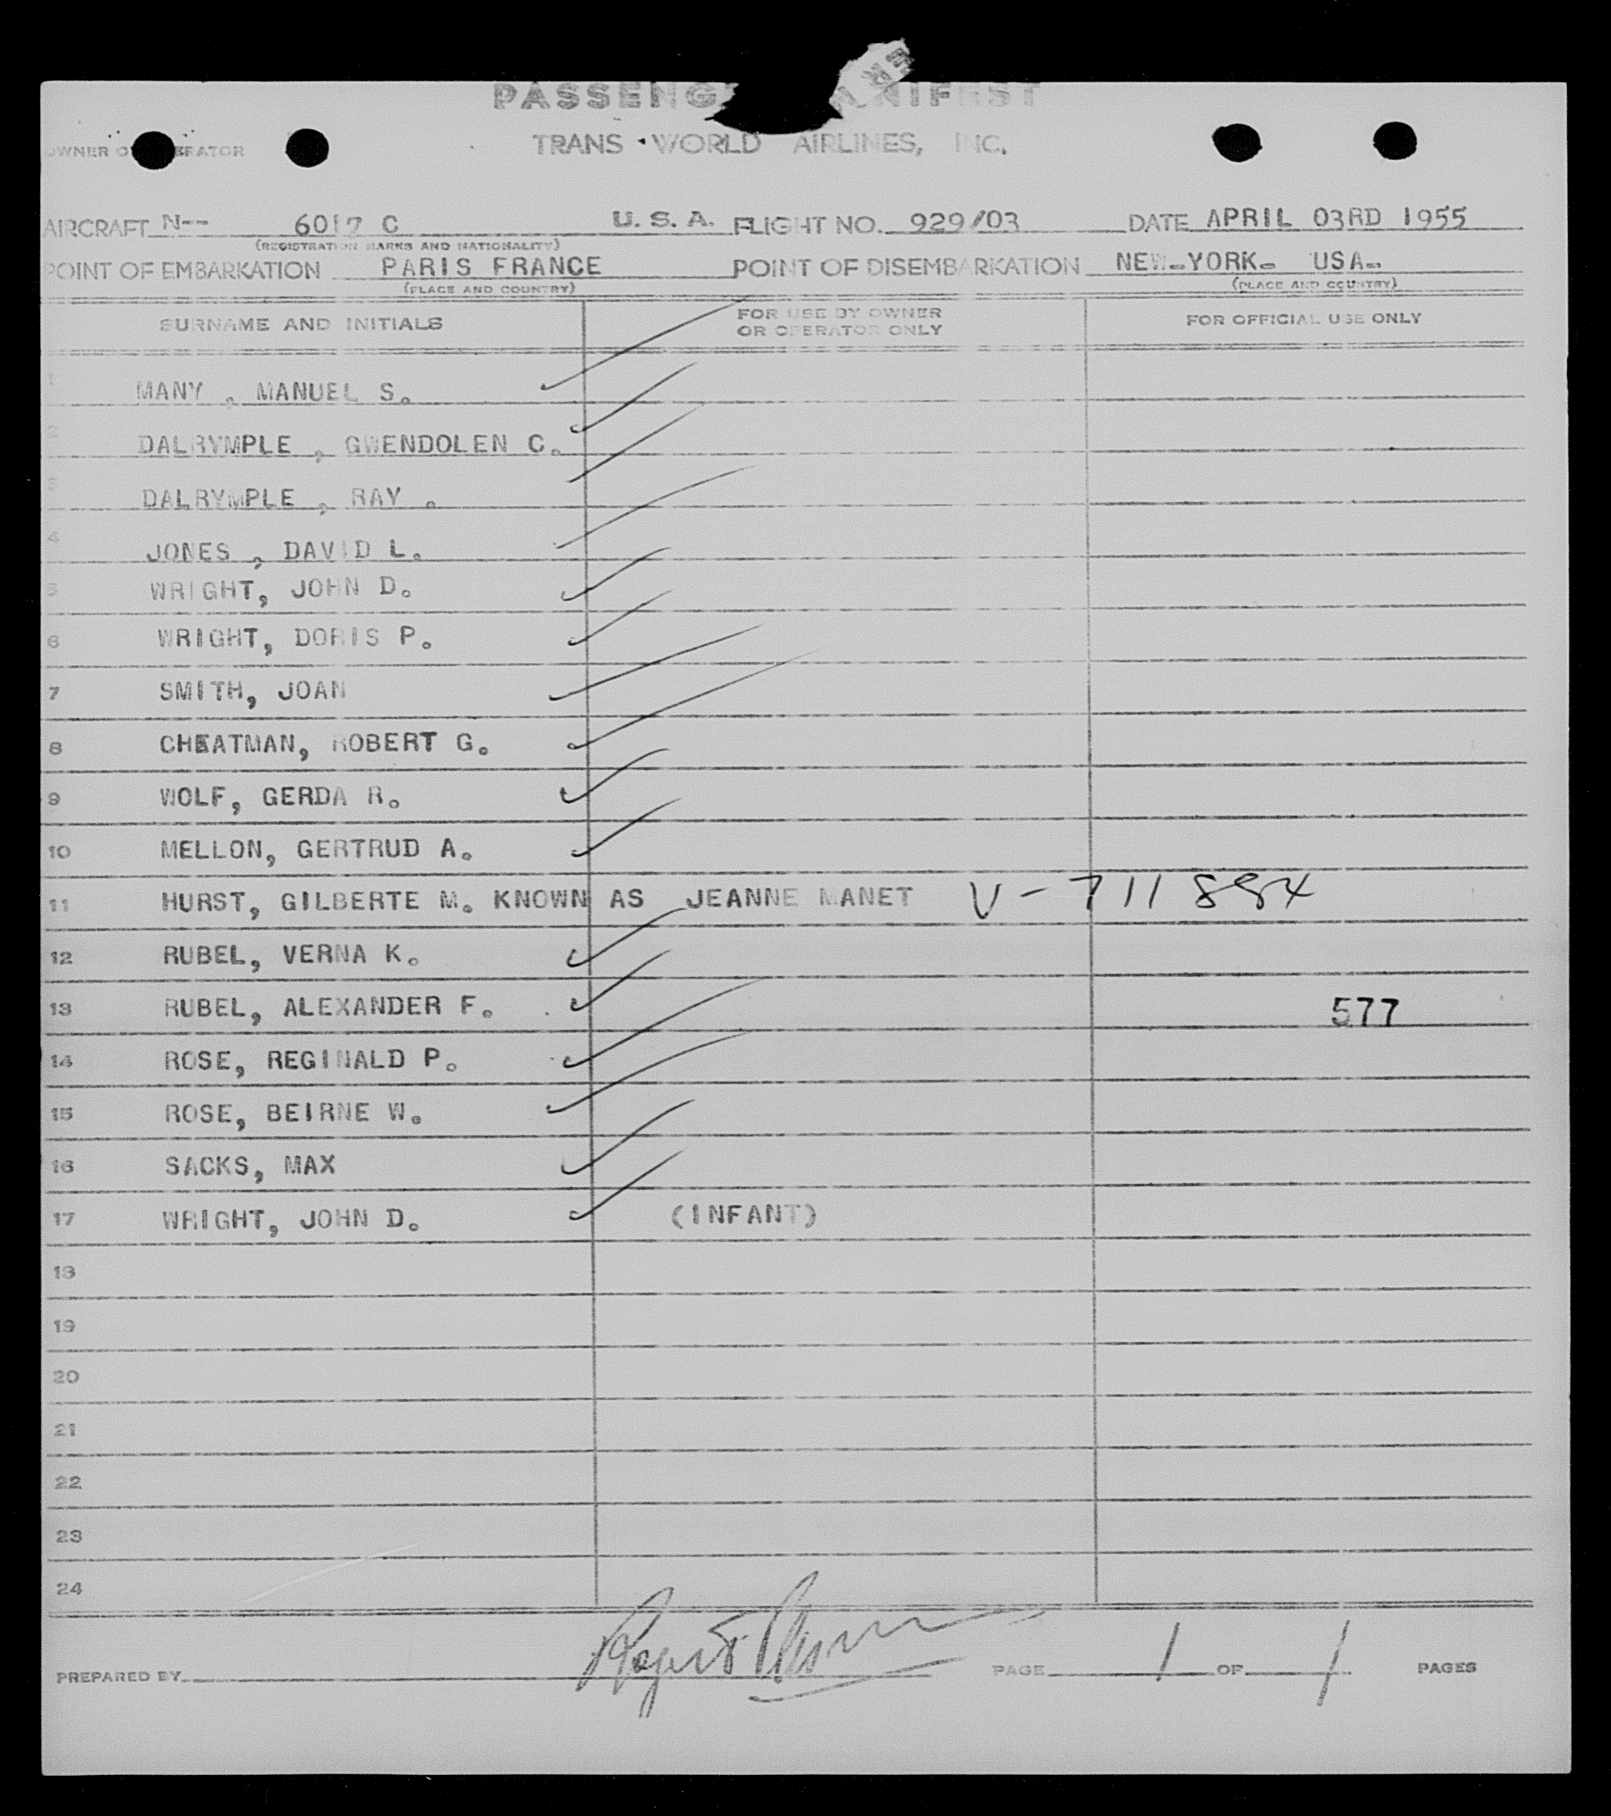 PASSENGER MANIFEST
TRANS WORLD AIRLINES, INC.
OWNER OR OPERATOR
AIRCRAFT N-- 6017 C U. S. A. FLIGHT NO. 929/03 DATE APRIL 03RD 1955
(REGISTRATION MARKS AND NATIONALITY)
POINT OF EMBARKATION PARIS FRANCE POINT OF DISEMBARKATION NEW-YORK- USA-
(PLACE AND COUNTRY) (PLACE AND COUNTRY)
SURNAME AND INITIALS FOR USE BY OWNER OR OPERATOR ONLY FOR OFFICIAL USE ONLY
1 MANY , MANUEL S.
2 DALRYMPLE , GWENDOLEN C.
3 DALRYMPLE , RAY .
4 JONES , DAVID L.
5 WRIGHT, JOHN D.
6 WRIGHT, DORIS P.
7 SMITH, JOAN
8 CHEATMAN, ROBERT G.
9 WOLF, GERDA R.
10 MELLON, GERTRUD A.
11 HURST, GILBERTE M. KNOWN AS JEANNE MANET V-711884
12 RUBEL, VERNA K.
13 RUBEL, ALEXANDER F. 577
14 ROSE, REGINALD P.
15 ROSE, BEIRNE W.
16 SACKS, MAX
17 WRIGHT, JOHN D. (INFANT)
18
19
20
21
22
23
24
PREPARED BY PAGE 1 OF 1 PAGES